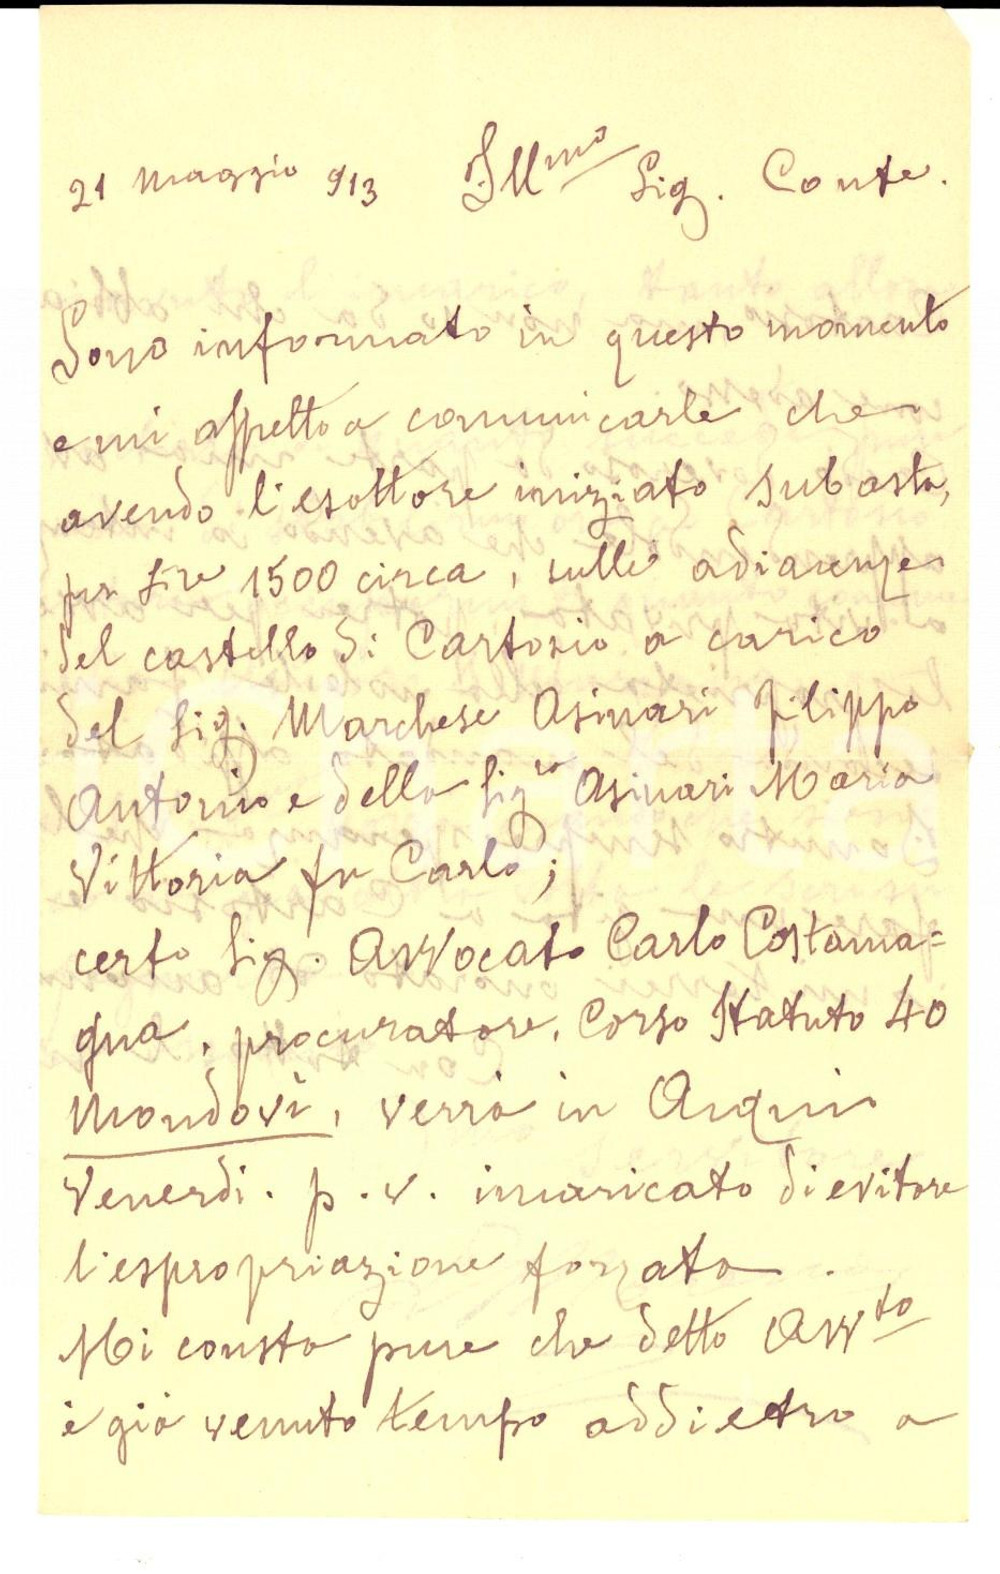 21 Maggio 913 Illmo Sig. Conte.
Sono informato in questo momento
e mi affretto a comunicarle che
avendo l'esattore iniziato subasta,
per Lire 1500 circa, sulle adiacenze
del castello di Cartosio a carico
del Sig. Marchese Asinari Filippo
Antonio e della Sigra Asinari Maria
Vittoria fu Carlo;
certo Sig. Avvocato Carlo Costama=
gna, procuratore, Corso Statuto 40
Mondovì, verrà in Acqui
Venerdi. p.v. incaricato di evitare
l'espropriazione forzata.
Mi consta pure che detto Avvto
è già venuto tempo addietro a